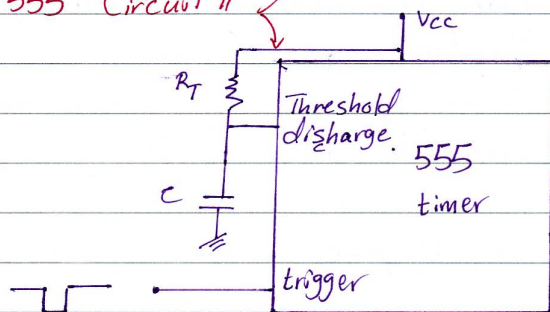 555 Circuit II
Vcc
RT
Threshold
disharge.
555
timer
C
trigger